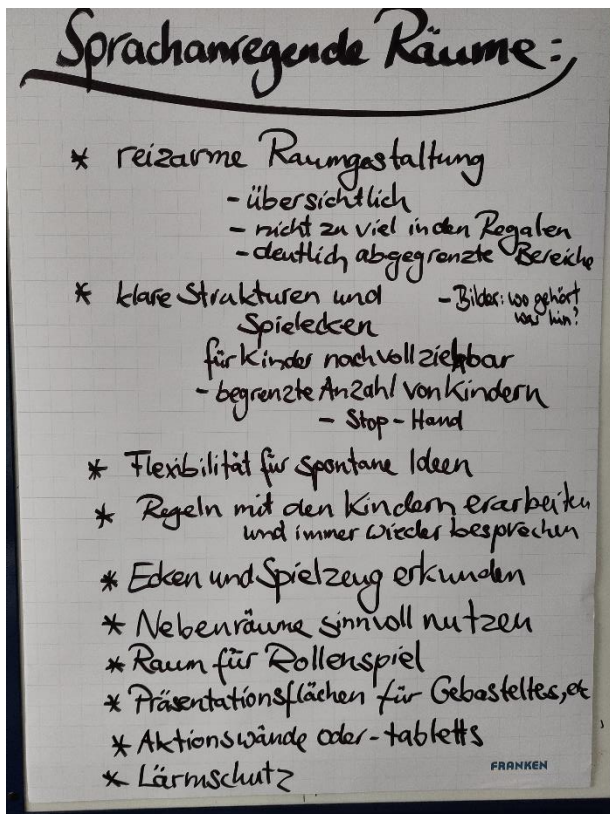 Sprachanregende Räume:
* reizarme Raumgestaltung
- übersichtlich
- nicht zu viel in den Regalen
- deutlich abgegrenzte Bereiche
- Bilder: wo gehört
was hin?
* klare Strukturen und
Spielecken
für Kinder nachvollziehbar
- begrenzte Anzahl von Kindern
- Stop-Hand
* Flexibilität für spontane Ideen
* Regeln mit den Kindern erarbeiten
und immer wieder besprechen
* Ecken und Spielzeug erkunden
* Nebenräume sinnvoll nutzen
* Raum für Rollenspiel
* Präsentationsflächen für Gebasteltes, etc
* Aktionswände oder -tabletts
* Lärmschutz
FRANKEN